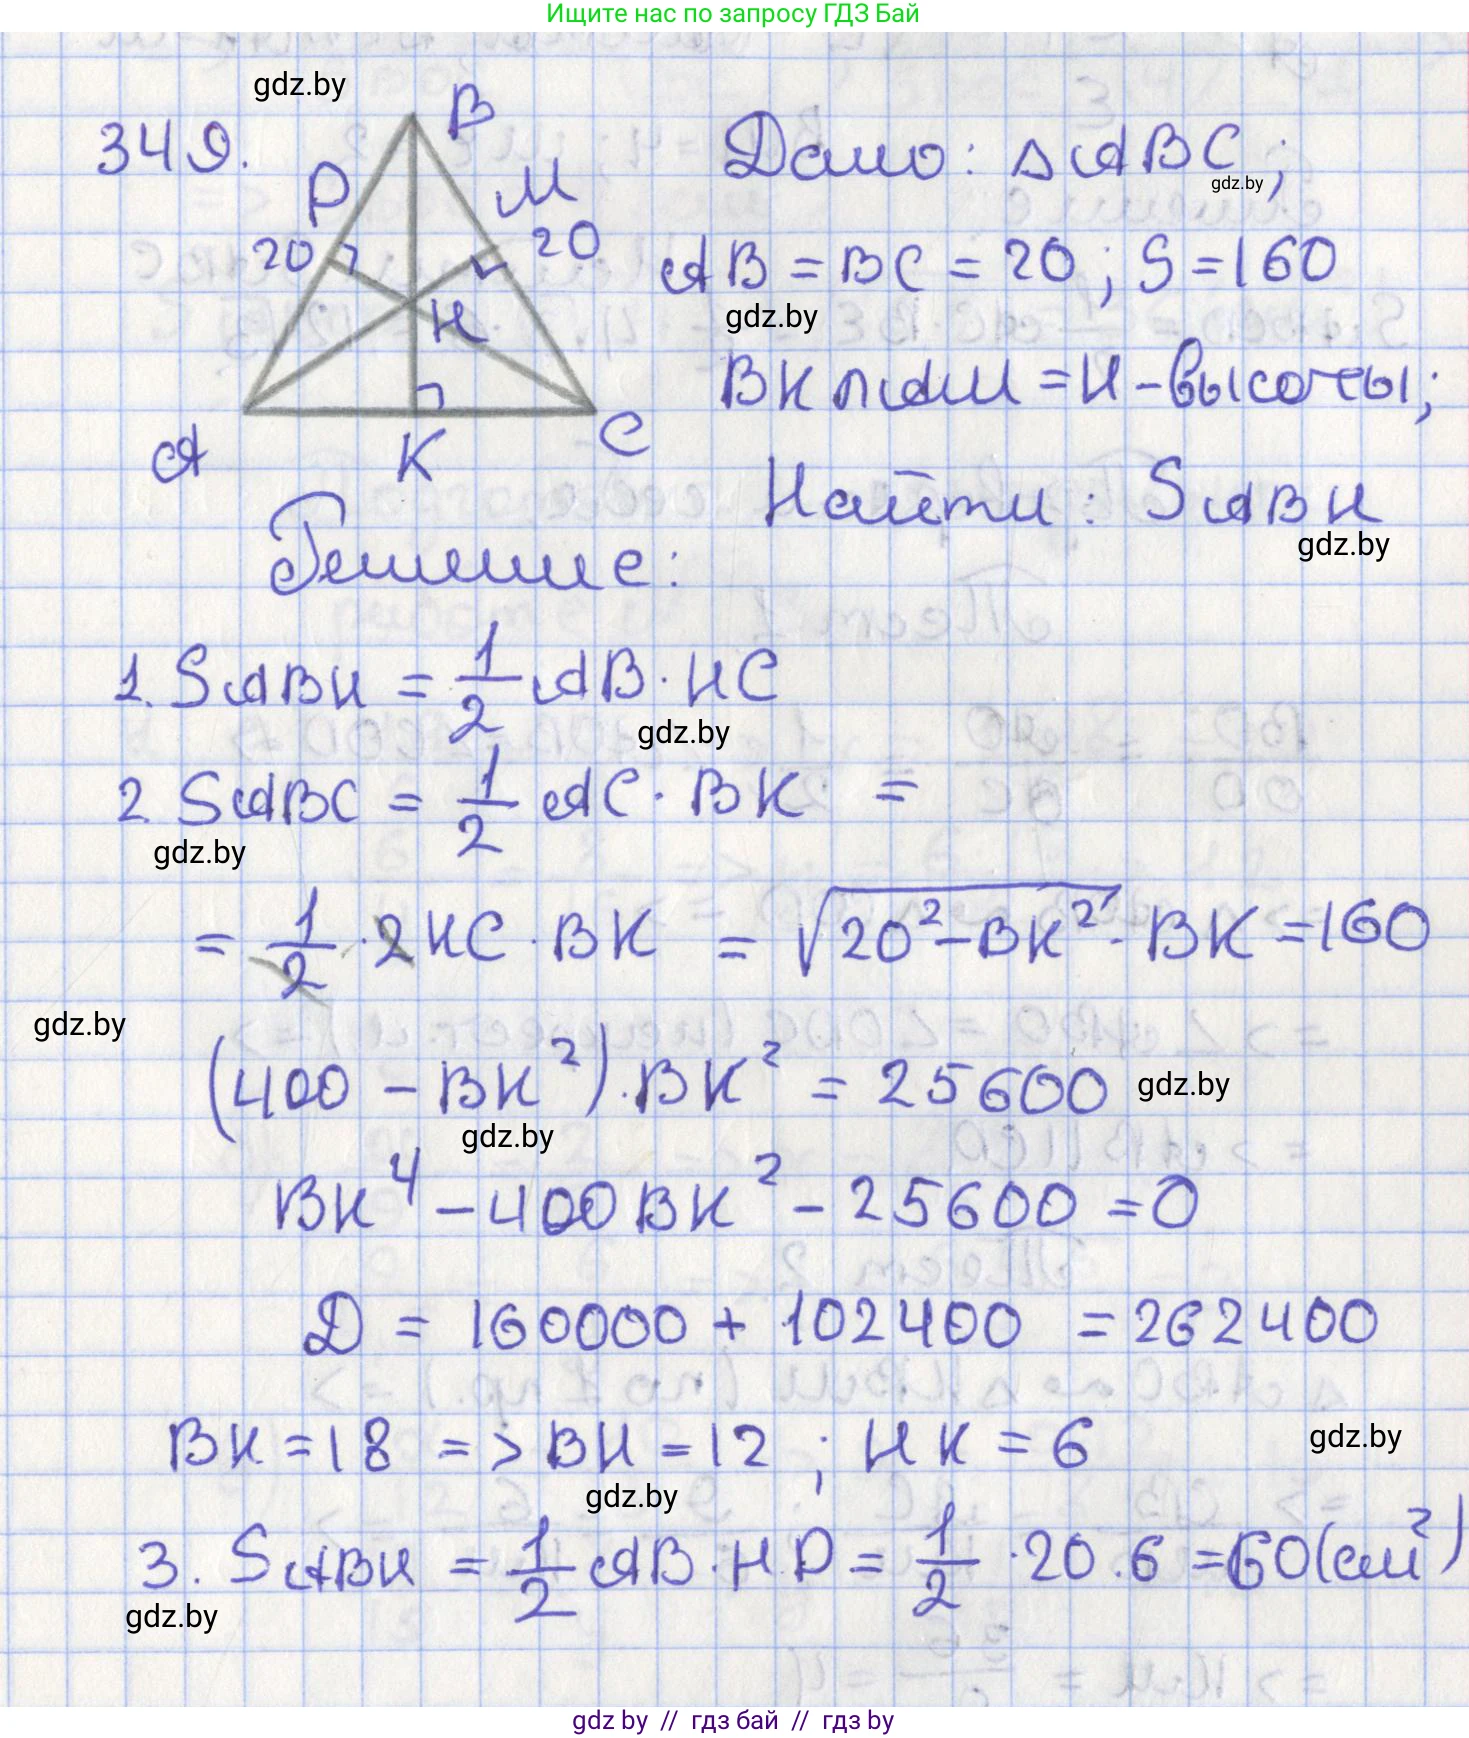 Ищите нас по запросу ГДЗ Бай
gdz.by
349.
B
P
M
20
20
H
A
K
C
Дано: △ABC;
gdz.by
AB = BC = 20; S = 160
gdz.by
BK ∩ AM = H - высоты;
Найти: SABH
gdz.by
Решение:
1. SABH = 1/2 AB · HC
gdz.by
2. SABC = 1/2 AC · BK =
gdz.by
= 1/2 · 2KC · BK = √(20² - BK²) · BK = 160
gdz.by
(400 - BK²) · BK² = 25600
gdz.by
gdz.by
BK⁴ - 400BK² - 25600 = 0
Д = 160000 + 102400 = 262400
BK = 18 => BH = 12; HK = 6
gdz.by
gdz.by
3. SABH = 1/2 AB · HP = 1/2 · 20 · 6 = 60 (см²)
gdz.by
gdz by // гдз бай // гдз by